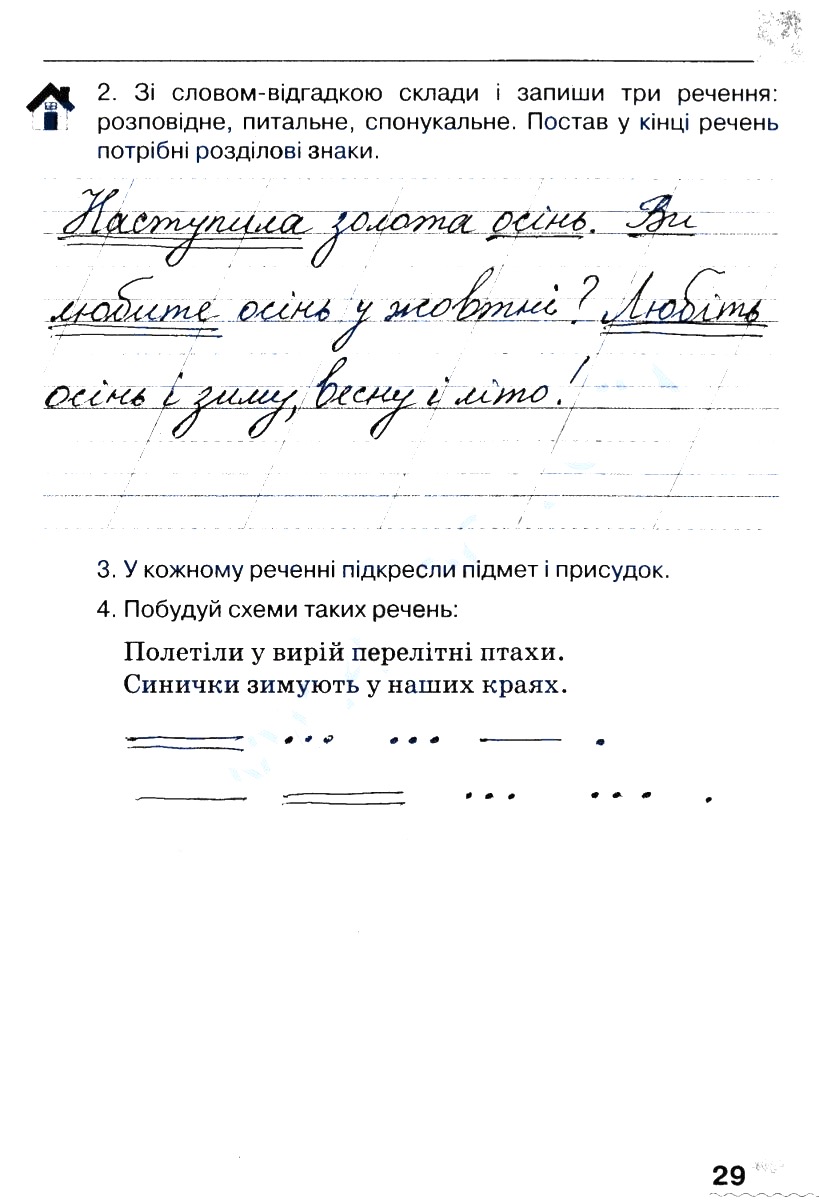 2. Зі словом-відгадкою склади і запиши три речення:
розповідне, питальне, спонукальне. Постав у кінці речень
потрібні розділові знаки.
Наступила золота осінь. Ви
любите осінь у жовтні? Любіть
осінь і зиму, весну і літо!
3. У кожному реченні підкресли підмет і присудок.
4. Побудуй схеми таких речень:
Полетіли у вирій перелітні птахи.
Синички зимують у наших краях.
29